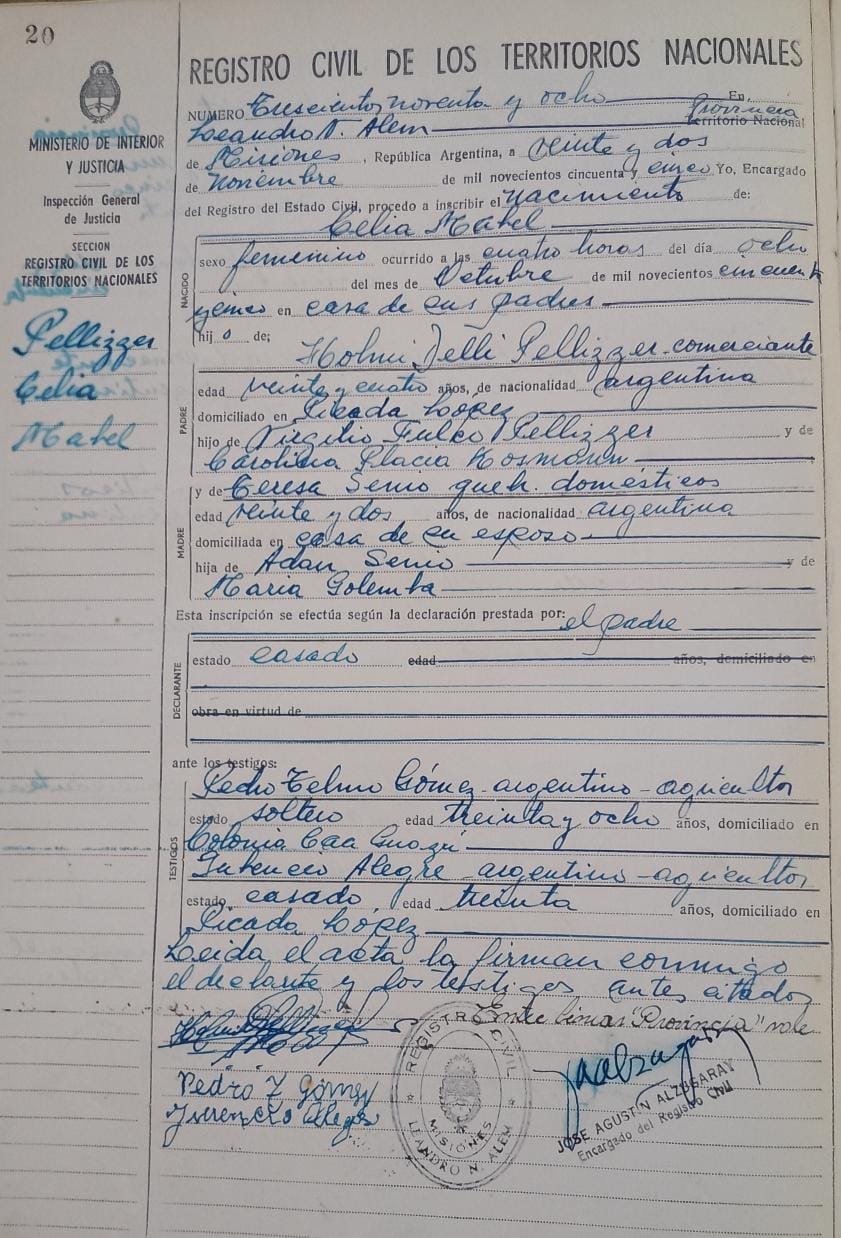 20
MINISTERIO DE INTERIOR
Y JUSTICIA
Inspección General
de Justicia
SECCION
REGISTRO CIVIL DE LOS
TERRITORIOS NACIONALES
Pellizzer
Celia
Mabel
REGISTRO CIVIL DE LOS TERRITORIOS NACIONALES
NUMERO Trescientos noventa y ocho En,
Leandro N. Alem Provincia Territorio Nacional
de Misiones, República Argentina, a veinte y dos
de Noviembre de mil novecientos cincuenta y cinco Yo, Encargado
del Registro del Estado Civil, procedo a inscribir el nacimiento de:
Celia Mabel
NACIDO
sexo femenino ocurrido a las cuatro horas del día ocho
del mes de Octubre de mil novecientos cincuenta
y cinco en casa de sus padres
hij o de;
Pellizzer - comerciante
PADRE
edad veinte y cuatro años, de nacionalidad argentina
domiciliado en Picada López
hijo de Virgilio Fulco Pellizzer y de
Carolina
MADRE
y de Teresa Senio queh. domésticos
edad veinte y dos años, de nacionalidad argentina
domiciliada en casa de su esposo
hija de Adan Senio y de
Maria Golemba
Esta inscripción se efectúa según la declaración prestada por: el padre
DECLARANTE
estado casado edad años, domiciliado en
obra en virtud de
ante los testigos:
TESTIGOS
Pedro Telmo Gómez - argentino - agricultor
estado soltero edad treinta y ocho años, domiciliado en
Colonia Caa Guazú
Alegre - argentino - agricultor
estado casado edad treinta años, domiciliado en
Picada López
Leida el acta la firman conmigo
el declarante y los testigos antes citados
Entre lineas "Provincia" vale
Pedro T Gómez
Alegre
REGISTRO CIVIL
MISIONES
LEANDRO N. ALEM
JOSE AGUSTIN ALZUGARAY
Encargado del Registro Civil